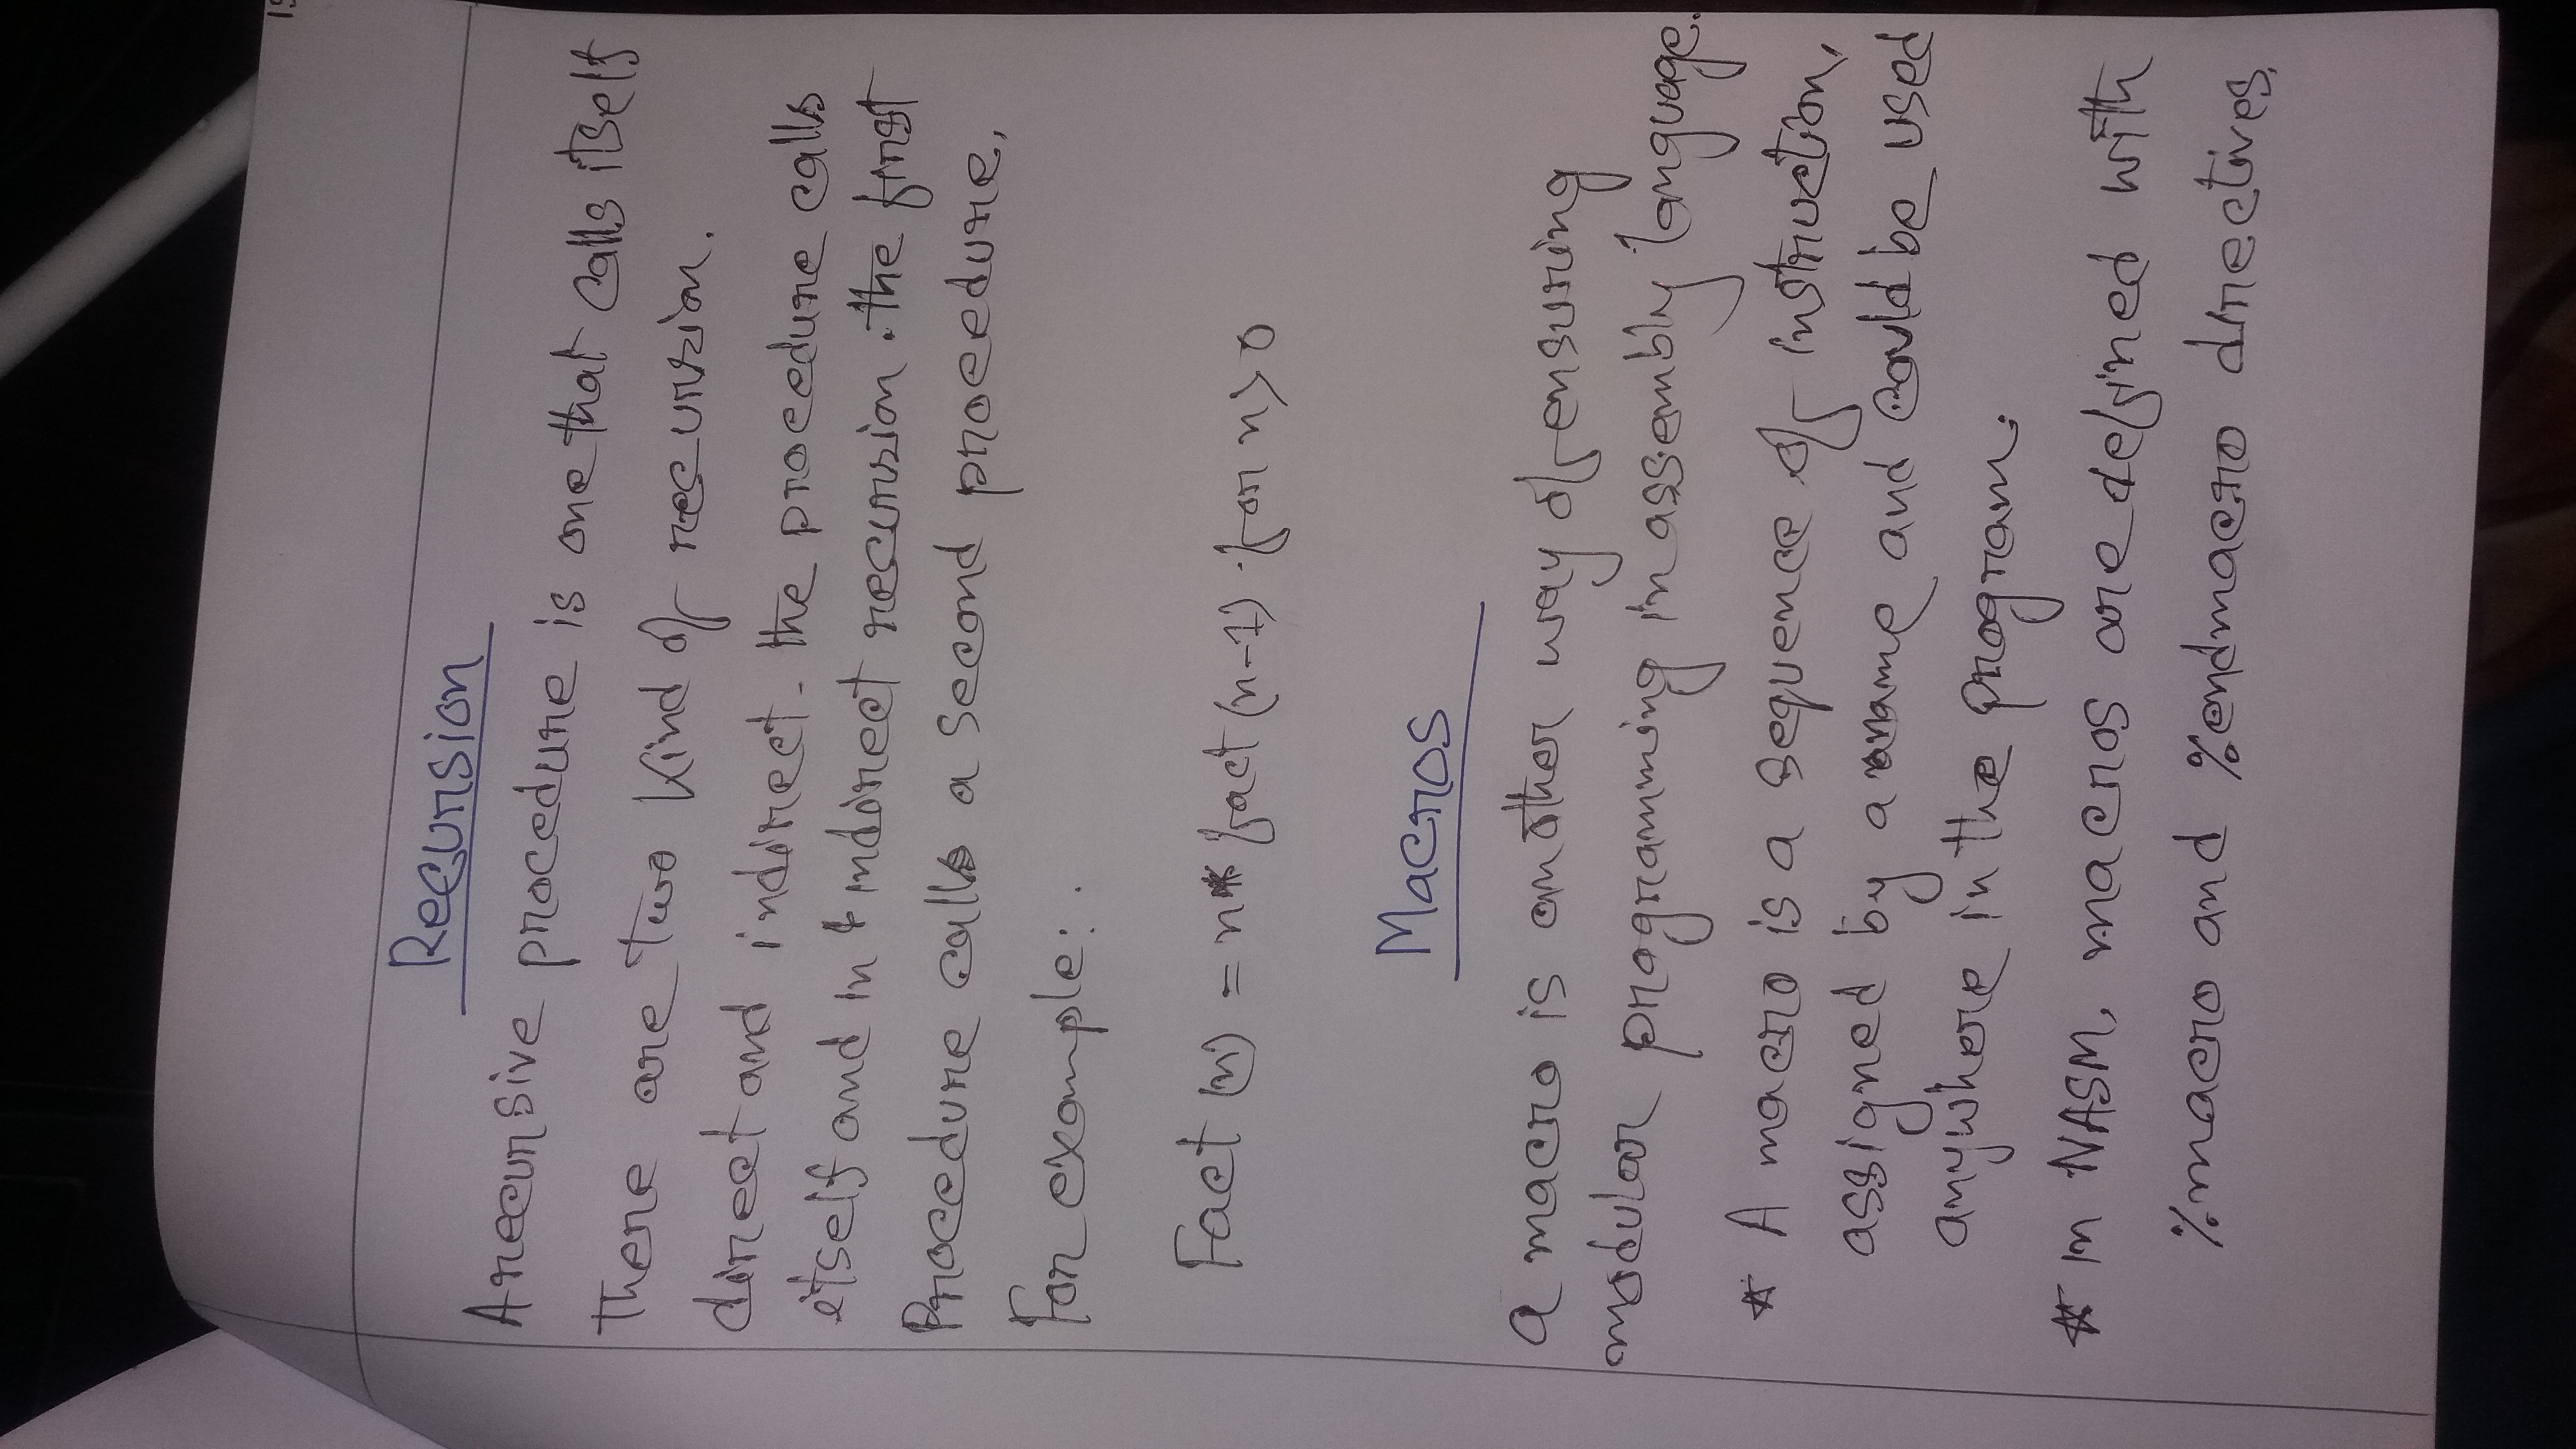 Recursion
A recursive procedure is one that calls itself
there are two kind of recursion.
direct and indirect. the procedure calls
itself and in indirect recursion. the first
Procedure calls a second procedure,
For example:.
Fact (n) = n* fact (n-1) for n > 0
Macros
a macro is another way of ensuring
modular programming in assembly language.
* A macro is a sequence of instruction,
assigned by a name and could be used
anywhere in the program.
* in NASM, macros are defined with
%macro and %endmacro directives.